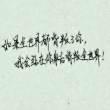 如果全世界都背叛了你，
我会站在你身后背叛全世界！